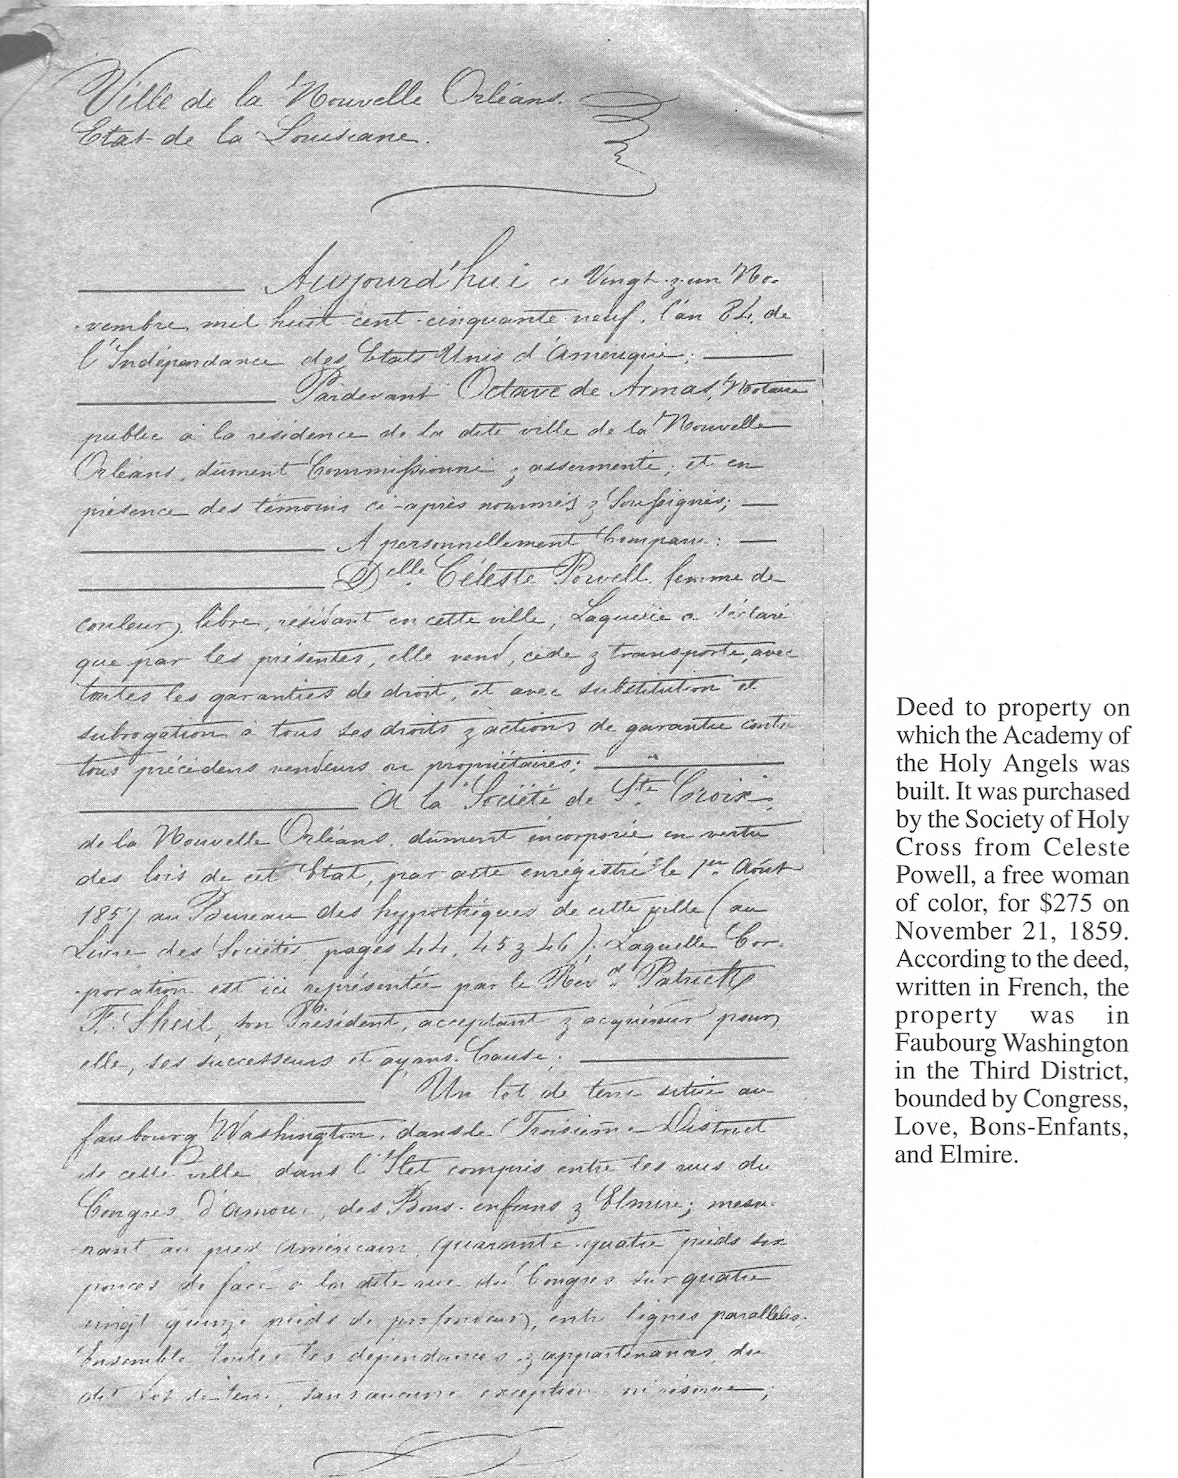 Ville de la Nouvelle Orléans.
Etat de la Louisiane.
Aujourd'hui ce Vingt & un No-
vembre mil huit cent cinquante neuf, l'an 84 de
l'Indépendance des Etats Unis d'Amérique;
Pardevant Octave de Armas, Notaire
public à la résidence de la dite ville de la Nouvelle
Orléans, dûment Commissionné & assermenté, et en
présence des témoins ci-après nommés & Soussignés;
A personnellement Comparu:
Delle Céleste Powell, femme de
couleur, libre, résidant en cette ville, Laquelle a déclaré
que par les présentes, elle vend, cède & transporte, avec
toutes les garanties de droit, et avec substitution et
subrogation à tous ses droits & actions de garantie contre
tous précédens vendeurs ou propriétaires;
à la Société de Ste Croix,
de la Nouvelle Orléans, dûment incorporée en vertu
des lois de cet Etat, par acte enrégistré le 1er Août
1857 au Bureau des hypothèques de cette ville (au
Livre des Sociétés pages 44, 45 & 46). Laquelle Cor-
poration est ici représentée par le Révd. Patrick
F. Sheil, son Président, acceptant & acquéreur pour
elle, ses successeurs et ayans Cause;
Un lot de terre situé au
faubourg Washington, dans le Troisième District
de cette ville dans l'Ilet compris entre les rues du
Congrès, d'amour, des Bons-enfans & Elmire; mesu-
rant au pied américain, quarante-quatre pieds six
pouces de face à la dite rue du Congrès sur quatre
vingt quinze pieds de profondeur, entre lignes parallèles.
Ensemble toutes les dépendances & appartenances du
dit Lot de terre, sans aucune exception ni réserve;
Deed to property on
which the Academy of
the Holy Angels was
built. It was purchased
by the Society of Holy
Cross from Celeste
Powell, a free woman
of color, for $275 on
November 21, 1859.
According to the deed,
written in French, the
property was in
Faubourg Washington
in the Third District,
bounded by Congress,
Love, Bons-Enfants,
and Elmire.